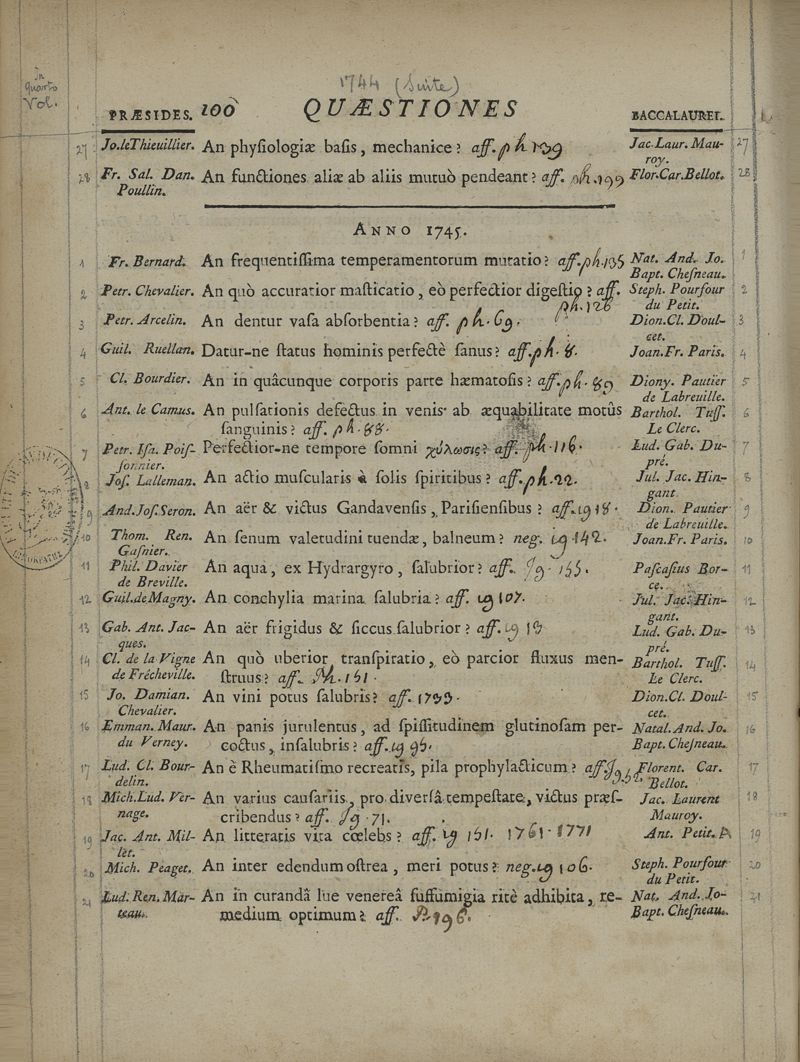 1744 (Suite)
in
quarto
Vol.
PRÆSIDES. 100 QUÆSTIONES BACCALAUREI.
27 Jo. le Thieuillier. An phyſiologiæ baſis, mechanice? aff. ph. 109 Jac. Laur. Mau- 27
roy.
28 Fr. Sal. Dan. An functiones aliæ ab aliis mutuò pendeant? aff. ph. 199 Flor. Car. Bellot. 28
Poullin.
ANNO 1745.
1 Fr. Bernard. An frequentiſſima temperamentorum mutatio? aff. ph. 135 Nat. And. Jo. 1
Bapt. Cheſneau.
2 Petr. Chevalier. An quò accuratior maſticatio, eò perfectior digeſtio? aff. Steph. Pourfour 2
ph. 126 du Petit.
3 Petr. Arcelin. An dentur vaſa abſorbentia? aff. ph. 69. Dion. Cl. Doul- 3
cet.
4 Guil. Ruellan. Datur-ne ſtatus hominis perfectè ſanus? aff. ph. 8. Joan. Fr. Paris. 4
5 Cl. Bourdier. An in quâcunque corporis parte hæmatoſis? aff. ph. 89 Diony. Pautier 5
de Labreuille.
6 Ant. le Camus. An pulſationis defectus in venis ab æquabilitate motûs Barthol. Tuſſ. 6
ſanguinis? aff. ph. 88. Le Clerc.
7 Petr. Iſa. Poiſ- Perfectior-ne tempore ſomni χύλωσις? aff. ph. 116. Lud. Gab. Du- 7
ſonnier. pré.
8 Joſ. Lalleman. An actio muſcularis à ſolis ſpiritibus? aff. ph. 22. Jul. Jac. Hin- 8
gant.
9 And. Joſ. Seron. An aër & victus Gandavenſis, Pariſienſibus? aff. Dion. Pautier 9
de Labreuille.
10 Thom. Ren. An ſenum valetudini tuendæ, balneum? neg. 142. Joan. Fr. Paris. 10
Gaſnier.
11 Phil. Davier An aqua, ex Hydrargyro, ſalubrior? aff. 155. Paſcaſius Bor- 11
de Breville. ce.
12 Guil. de Magny. An conchylia marina ſalubria? aff. 107. Jul. Jac. Hin- 12
gant.
13 Gab. Ant. Jac- An aër frigidus & ſiccus ſalubrior? aff. Lud. Gab. Du- 13
ques. pré.
14 Cl. de la Vigne An quò uberior tranſpiratio, eò parcior fluxus men- Barthol. Tuſſ. 14
de Frécheville. ſtruus? aff. Le Clerc.
15 Jo. Damian. An vini potus ſalubris? aff. Dion. Cl. Doul- 15
Chevalier. cet.
16 Emman. Maur. An panis jurulentus, ad ſpiſſitudinem glutinoſam per- Natal. And. Jo. 16
du Verney. coctus, inſalubris? aff. Bapt. Cheſneau.
17 Lud. Cl. Bour- An è Rheumatiſmo recreatis, pila prophylacticum? aff. Florent. Car. 17
delin. Bellot.
18 Mich. Lud. Ver- An varius cauſariis, pro diverſâ tempeſtate, victus præſ- Jac. Laurent 18
nage. cribendus? aff. 71. Mauroy.
19 Jac. Ant. Mil- An litteratis vita cœlebs? aff. 151. 1761. 1771 Ant. Petit. 19
let.
20 Mich. Peaget. An inter edendum oſtrea, meri potus? neg. 106. Steph. Pourfour 20
du Petit.
21 Lud. Ren. Mar- An in curandâ lue venereâ ſuffumigia ritè adhibita, re- Nat. And. Jo- 21
teau. medium optimum? aff. 196. Bapt. Cheſneau.